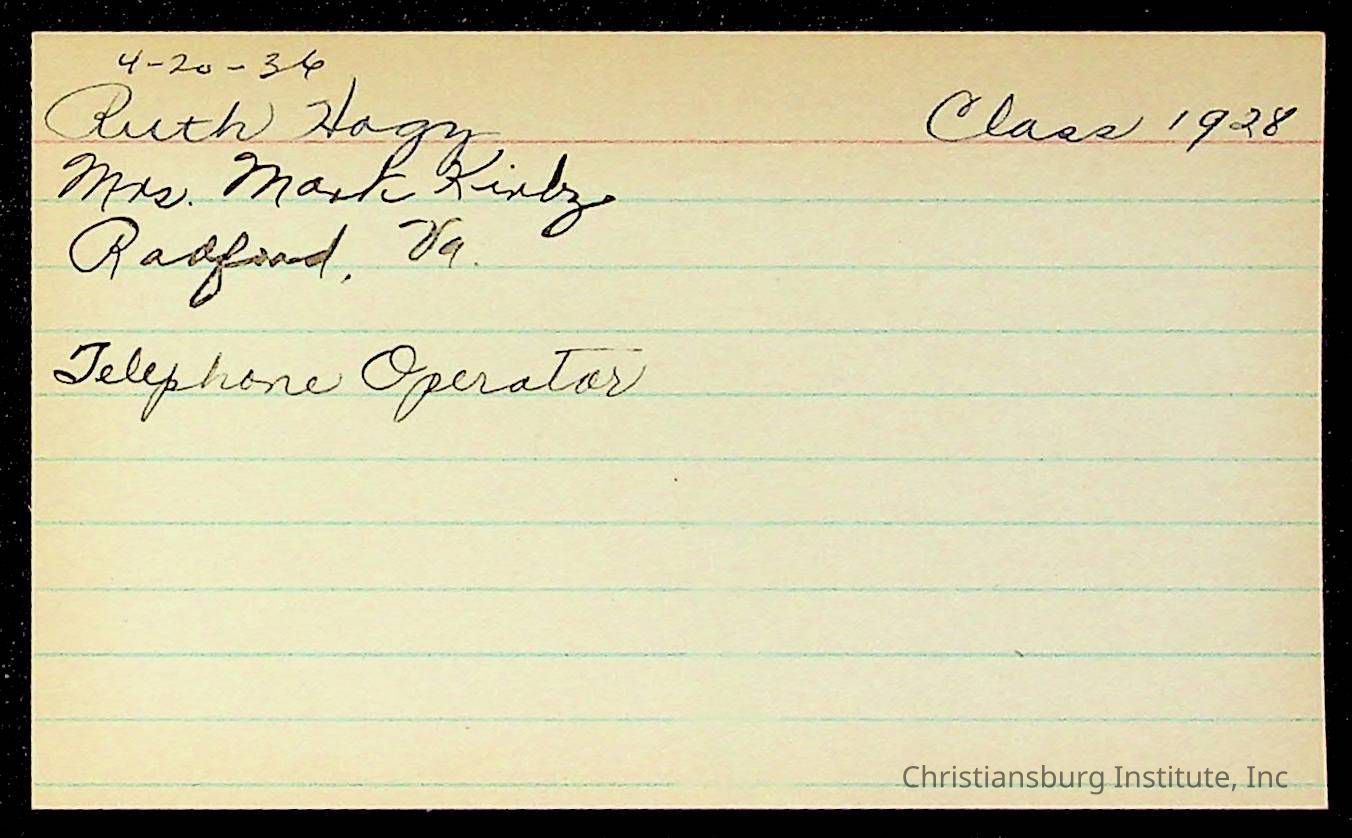 4-20-36
Ruth Hagy Class 1928
Mrs. Mark Kirby
Radford, Va.
Telephone Operator
Christiansburg Institute, Inc